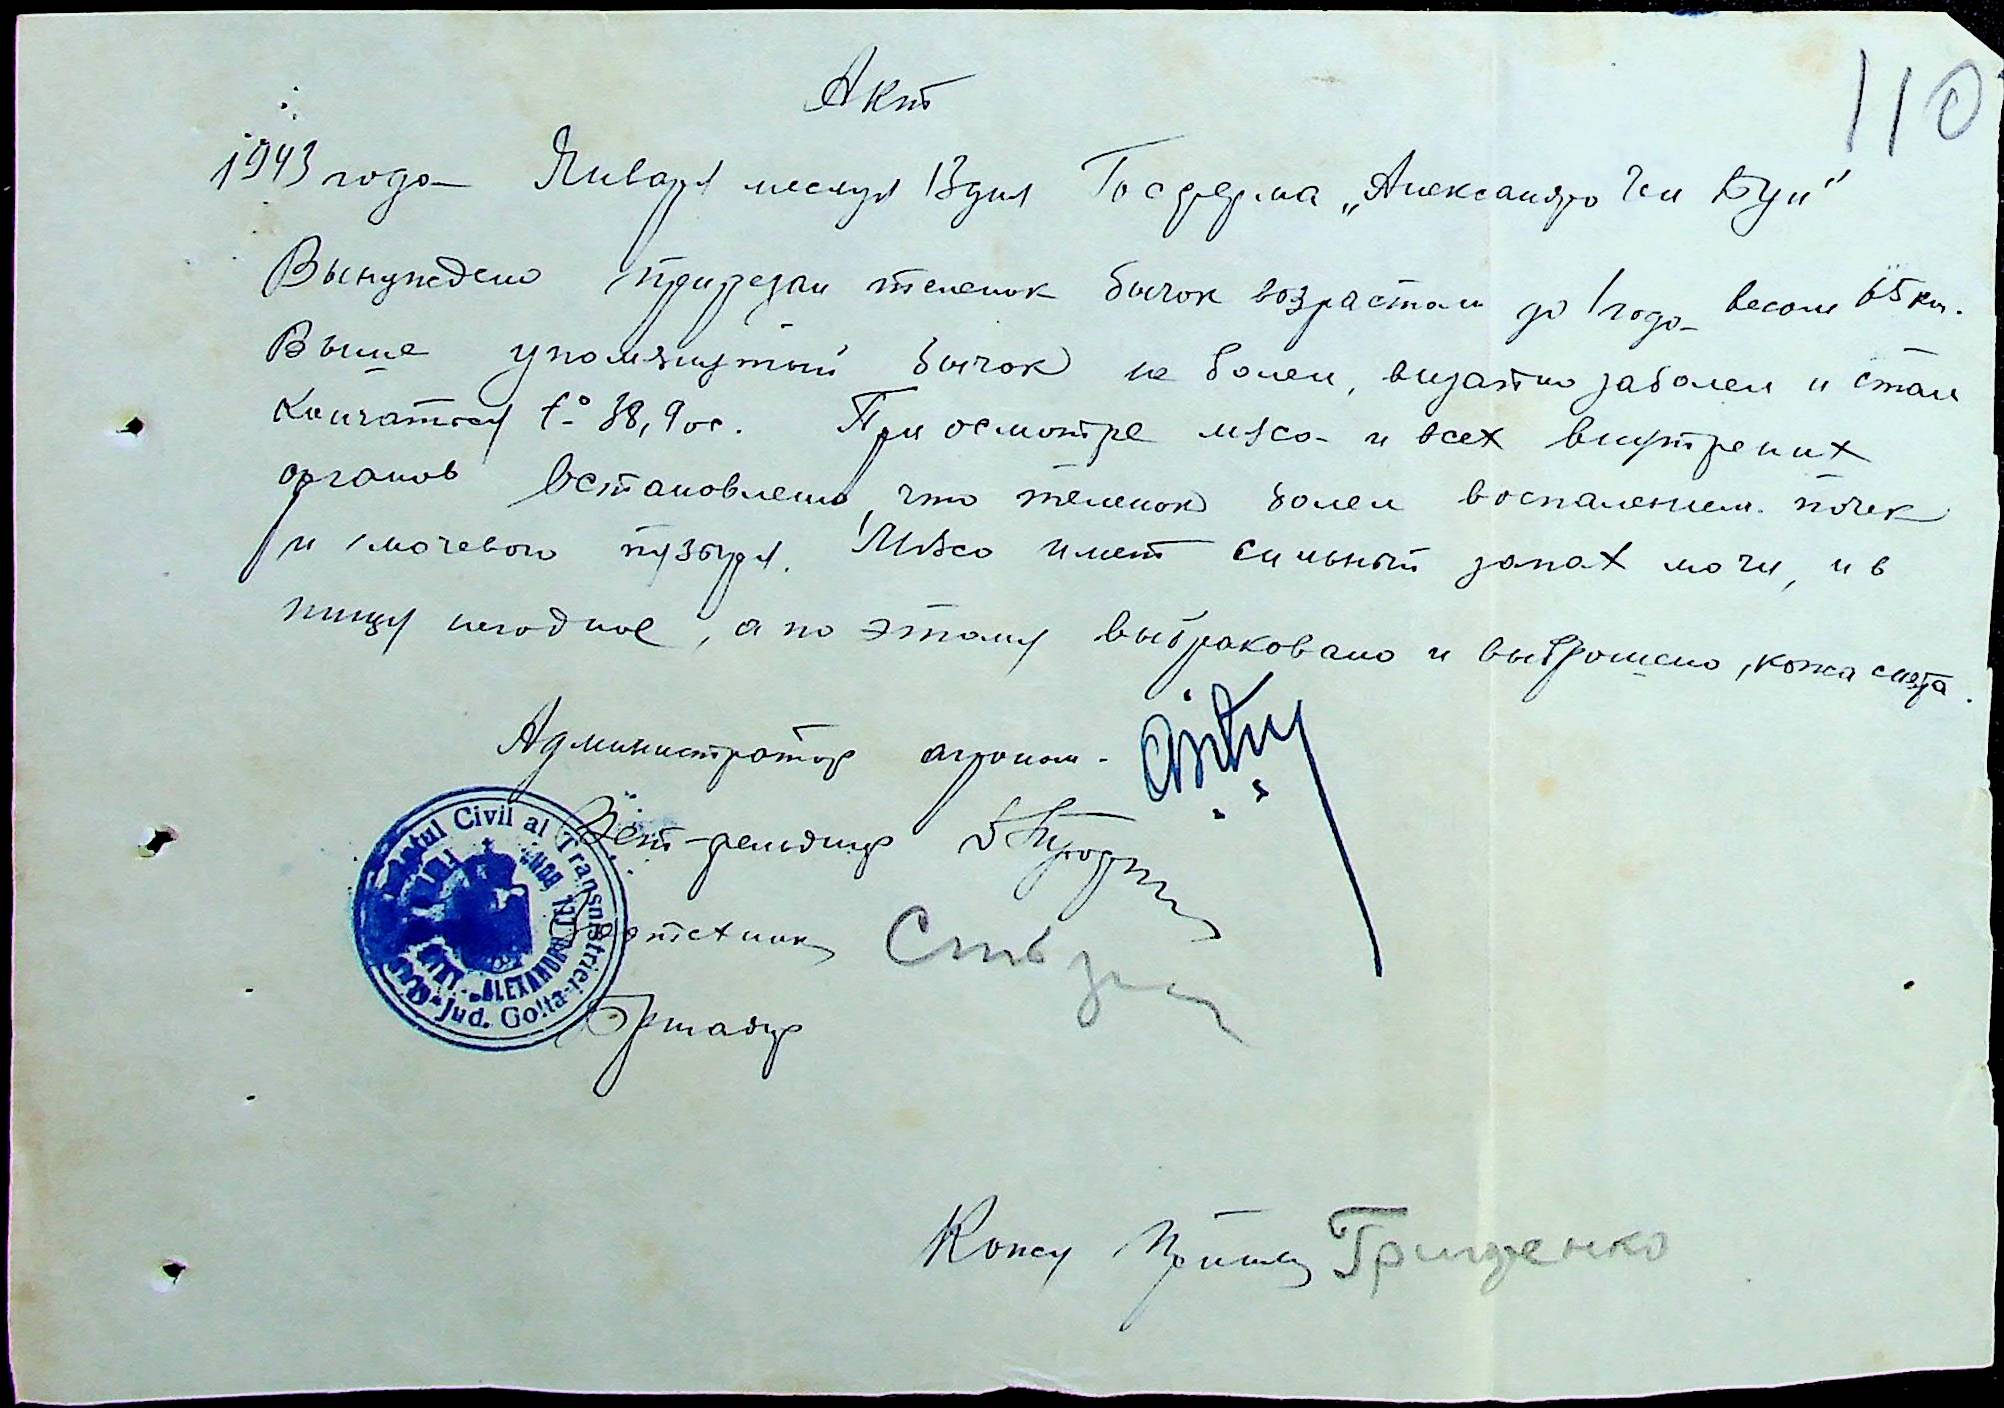 110
Акт
1943 года Января месяца 13 дня Госферма „Александро Чел Бун"
Вынуждено прирезан теленок бычок возрастом до 1 года весом 65 кг.
Выше упомянутый бычок не болел, внезапно заболел и стал
кончаться t° 38,9 ос. При осмотре мясо и всех внутрених
органов встановлено, что теленок болел воспалением почек
и мочевого пузыря. Мясо имет сильный запах мочи, и в
пищу негодное, а по этому выбраковано и выброшено, кожа снята.
Администратор агроном.
Вет-фельдшер
Civil al Transnistriei
ALEXANDRU CEL BUN
Jud. Golta
Кожу принял Грищенко